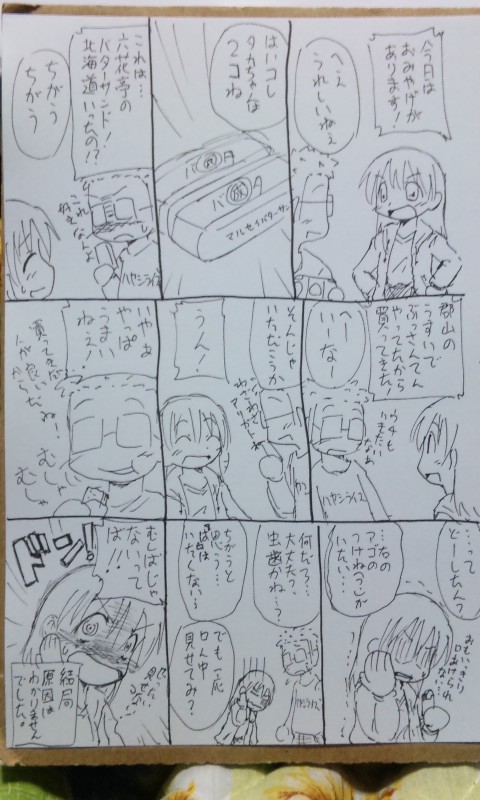 今日は
おみやげが
あります!
へぇ
うれしいねぇ
はいコレ
タカちゃんな
2コね
マルセイバターサン
これは…
六花亭の
バターサンド!
北海道いったの!?
ちがう
ちがう
ハヤシライス
郡山の
うすいで
ぶっさんてん
やってたから
買ってきた!
へー
いーなー
ハヤシライス
そんじゃ
いただこうか
うん!
いやぁ
やっぱ
うまい
ねぇ!
むしゃ
むしゃ
…って
どーしたん?
…なの
アゴの
つけねっこが
いたい…
おもいっきり
口あけられ
ない…
何だって…
大丈夫?
虫歯がね…?
ちがうと
思う…
歯は
いたくない…
でも一応
口ん中
見せてみ?
ハヤシライス
むしばじゃ
ないって
ば!!
ドン!
結局
原因は
わかりません
でした。